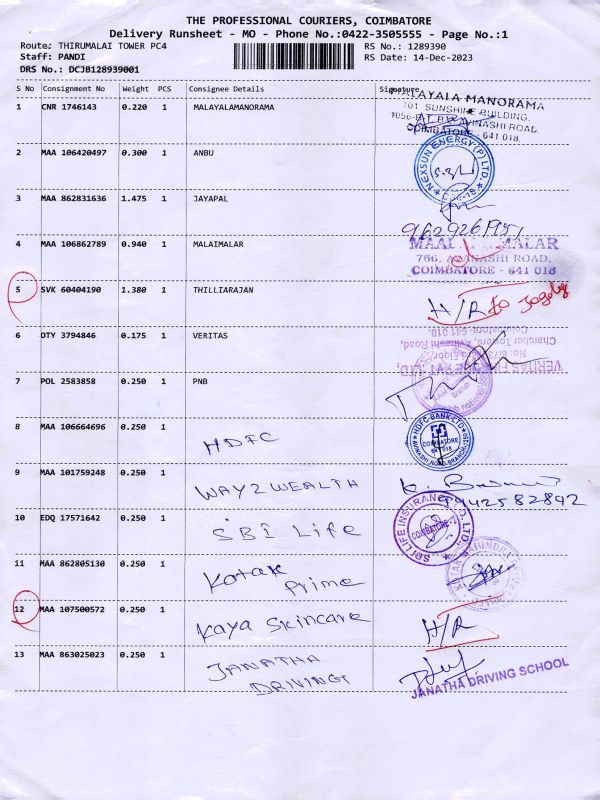 THE PROFESSIONAL COURIERS, COIMBATORE
Delivery Runsheet - MO - Phone No.:0422-3505555 - Page No.:1
Route: THIRUMALAI TOWER PC4
RS No.: 1289390
Staff: PANDI
RS Date: 14-Dec-2023
DRS No.: DCJB128939001
S No Consignment No Weight PCS Consignee Details Signature
1 CNR 1746143 0.220 1 MALAYALAMANORAMA
MALAYALA MANORAMA
101 SUNSHINE BUILDING,
AVINASHI ROAD,
COIMBATORE - 641 018.
2 MAA 106420497 0.300 1 ANBU
NEXSUN ENERGY (P) LTD.
3 MAA 862831636 1.475 1 JAYAPAL
4 MAA 106862789 0.940 1 MALAIMALAR
MALAR
766, AVANASHI ROAD,
COIMBATORE - 641 018
5 SVK 60404190 1.380 1 THILLIARAJAN
H/R to
6 OTY 3794846 0.175 1 VERITAS
Chamber Towers, Avinashi Road,
Coimbatore - 641 018.
7 POL 2583858 0.250 1 PNB
8 MAA 106664696 0.250 1 HDFC
HDFC BANK LTD
COIMBATORE
641 018
9 MAA 101759248 0.250 1 WAY2WEALTH
9942582892
10 EDQ 17571642 0.250 1 SBI Life
SBI LIFE INSURANCE CO. LTD.
COIMBATORE-2
11 MAA 862805130 0.250 1 Kotak
Prime
12 MAA 107500572 0.250 1 Kaya Skincare
H/R
13 MAA 863025023 0.250 1 JANATHA
DRIVING
JANATHA DRIVING SCHOOL